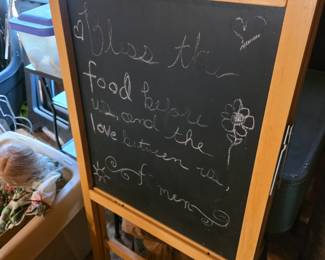 bless the
food before
us, and the
love between us,
Amen